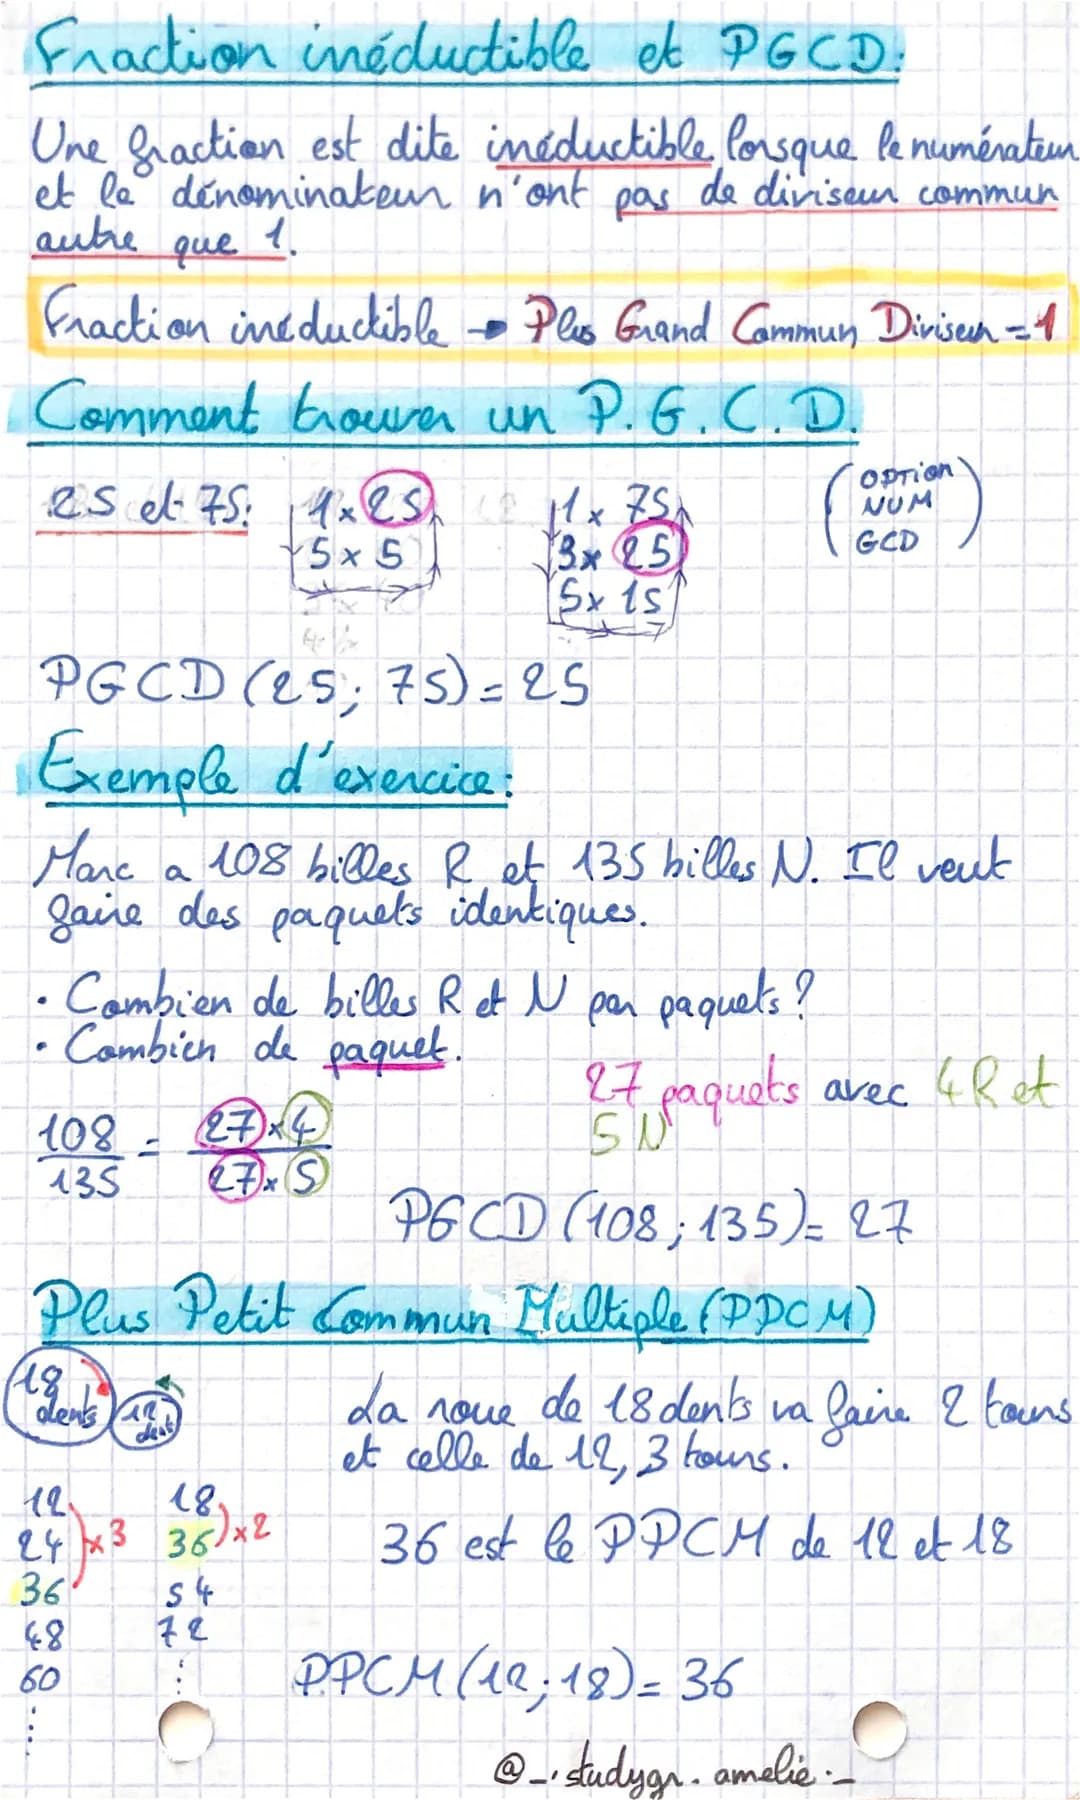 Fraction irréductible et PGCD:
Une fraction est dite irréductible lorsque le numérateur
et le dénominateur n'ont pas de diviseur commun
autre que 1.
Fraction irréductible → Plus Grand Commun Diviseur = 1
Comment trouver un P.G.C.D.
25 et 75: 1 x 25 1 x 75 (OPTION
5 x 5 3 x 25 NUM
5 x 15 GCD)
PGCD (25; 75) = 25
Exemple d'exercice:
Marc a 108 billes R et 135 billes N. Il veut
faire des paquets identiques.
• Combien de billes R et N par paquets?
• Combien de paquet.
27 paquets avec 4R et
5N
108/135 = 27x4/27x5
PGCD (108; 135) = 27
Plus Petit Commun Multiple (PPCM)
18 dents 12 dents
La roue de 18 dents va faire 2 tours
et celle de 12, 3 tours.
12 18
24 x3 36 x2
36 54
48 72
60 ⋮
⋮
36 est le PPCM de 12 et 18
PPCM (12; 18) = 36
@_.studygr.amelie._